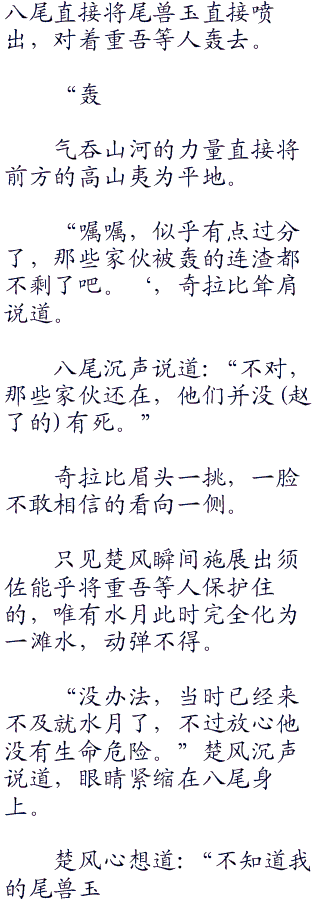 八尾直接将尾兽玉直接喷
出，对着重吾等人轰去。
“轰
气吞山河的力量直接将
前方的高山夷为平地。
“嘱嘱，似乎有点过分
了，那些家伙被轰的连渣都
不剩了吧。‘，奇拉比耸肩
说道。
八尾沉声说道：“不对，
那些家伙还在，他们并没(赵
了的)有死。”
奇拉比眉头一挑，一脸
不敢相信的看向一侧。
只见楚风瞬间施展出须
佐能乎将重吾等人保护住
的，唯有水月此时完全化为
一滩水，动弹不得。
“没办法，当时已经来
不及就水月了，不过放心他
没有生命危险。”楚风沉声
说道，眼睛紧缩在八尾身
上。
楚风心想道：“不知道我
的尾兽玉